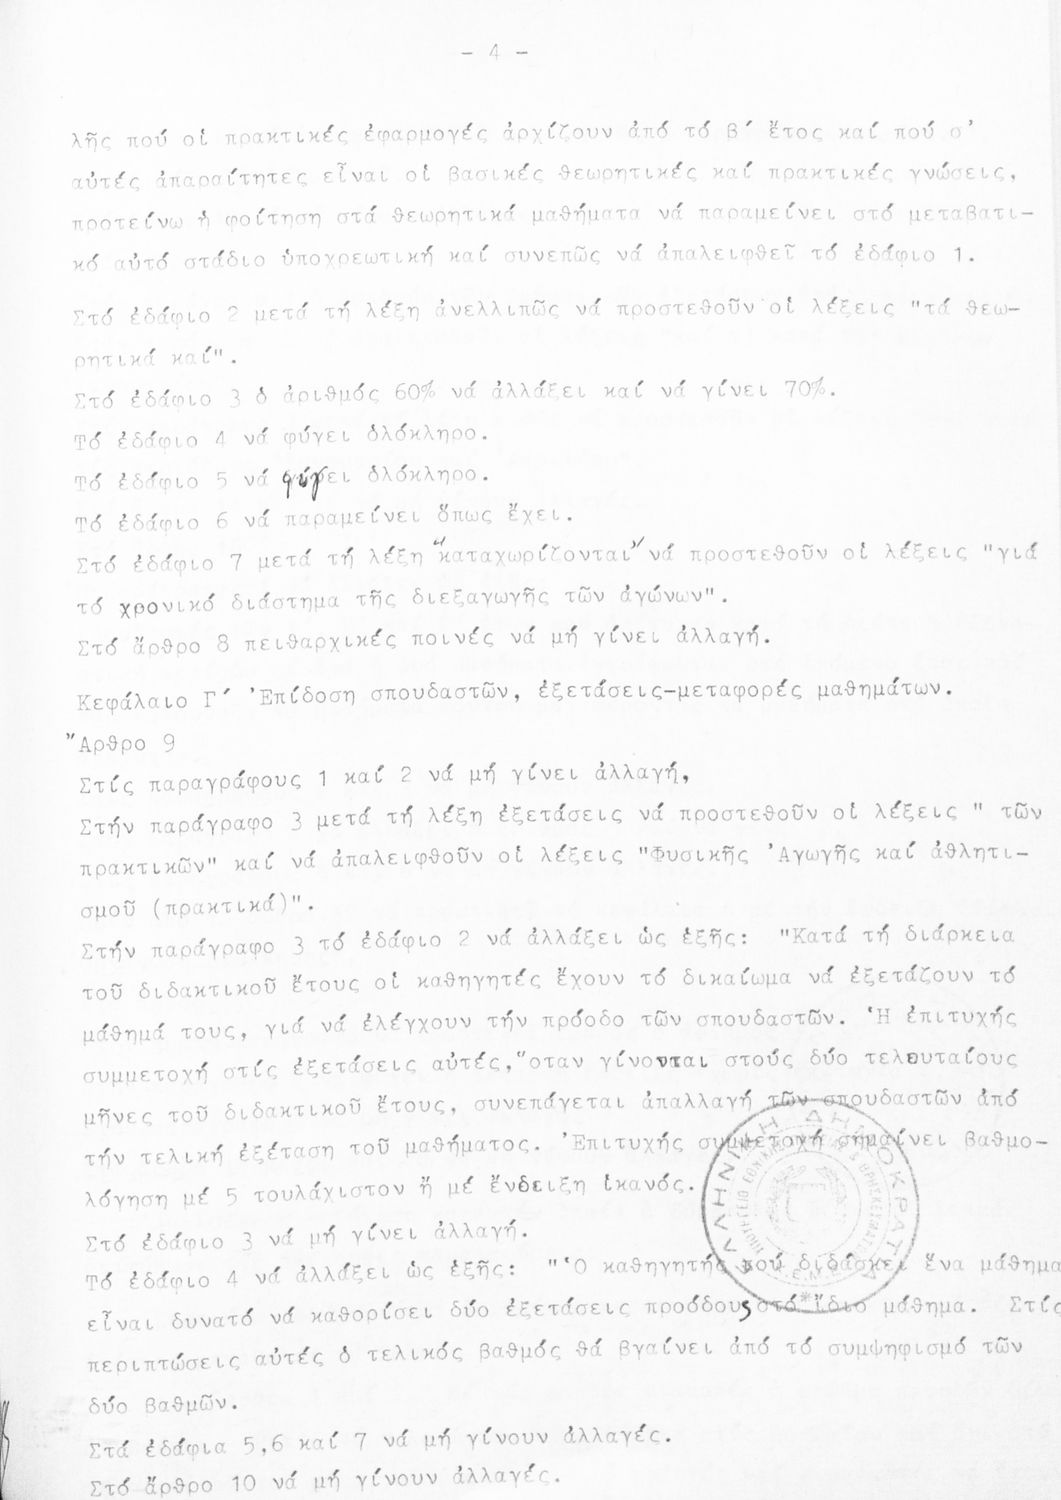 - 4 -
λῆς πού οἱ πρακτικές ἐφαρμογές ἀρχίζουν ἀπό τό β΄ ἔτος καί πού σ'
αὐτές ἀπαραίτητες εἶναι οἱ βασικές θεωρητικές καί πρακτικές γνώσεις,
προτείνω ἡ φοίτηση στά θεωρητικά μαθήματα νά παραμείνει στό μεταβατι-
κό αὐτό στάδιο ὑποχρεωτική καί συνεπῶς νά ἀπαλειφθεῖ τό ἐδάφιο 1.
Στό ἐδάφιο 2 μετά τή λέξη ἀνελλιπῶς νά προστεθοῦν οἱ λέξεις "τά θεω-
ρητικά καί".
Στό ἐδάφιο 3 ὁ ἀριθμός 60% νά ἀλλάξει καί νά γίνει 70%.
Τό ἐδάφιο 4 νά φύγει ὁλόκληρο.
Τό ἐδάφιο 5 νά φύγει ὁλόκληρο.
Τό ἐδάφιο 6 νά παραμείνει ὅπως ἔχει.
Στό ἐδάφιο 7 μετά τή λέξη "καταχωρίζονται" νά προστεθοῦν οἱ λέξεις "γιά
τό χρονικό διάστημα τῆς διεξαγωγῆς τῶν ἀγώνων".
Στό ἄρθρο 8 πειθαρχικές ποινές νά μή γίνει ἀλλαγή.
Κεφάλαιο Γ΄ Ἐπίδοση σπουδαστῶν, ἐξετάσεις-μεταφορές μαθημάτων.
Ἄρθρο 9
Στίς παραγράφους 1 καί 2 νά μή γίνει ἀλλαγή,
Στήν παράγραφο 3 μετά τή λέξη ἐξετάσεις νά προστεθοῦν οἱ λέξεις " τῶν
πρακτικῶν" καί νά ἀπαλειφθοῦν οἱ λέξεις "Φυσικῆς Ἀγωγῆς καί ἀθλητι-
σμοῦ (πρακτικά)".
Στήν παράγραφο 3 τό ἐδάφιο 2 νά ἀλλάξει ὡς ἐξῆς: "Κατά τή διάρκεια
τοῦ διδακτικοῦ ἔτους οἱ καθηγητές ἔχουν τό δικαίωμα νά ἐξετάζουν τό
μάθημά τους, γιά νά ἐλέγχουν τήν πρόοδο τῶν σπουδαστῶν. Ἡ ἐπιτυχής
συμμετοχή στίς ἐξετάσεις αὐτές, ὅταν γίνονται στούς δύο τελευταίους
μῆνες τοῦ διδακτικοῦ ἔτους, συνεπάγεται ἀπαλλαγή τῶν σπουδαστῶν ἀπό
τήν τελική ἐξέταση τοῦ μαθήματος. Ἐπιτυχής συμμετοχή σημαίνει βαθμο-
λόγηση μέ 5 τουλάχιστον ἤ μέ ἔνδειξη ἱκανός.
Στό ἐδάφιο 3 νά μή γίνει ἀλλαγή.
Τό ἐδάφιο 4 νά ἀλλάξει ὡς ἐξῆς: "Ὁ καθηγητής πού διδάσκει ἕνα μάθημα
εἶναι δυνατό νά καθορίσει δύο ἐξετάσεις προόδους στό ἴδιο μάθημα. Στίς
περιπτώσεις αὐτές ὁ τελικός βαθμός θά βγαίνει ἀπό τό συμψηφισμό τῶν
δύο βαθμῶν.
Στά ἐδάφια 5,6 καί 7 νά μή γίνουν ἀλλαγές.
Στό ἄρθρο 10 νά μή γίνουν ἀλλαγές.
ΕΛΛΗΝΙΚΗ ΔΗΜΟΚΡΑΤΙΑ